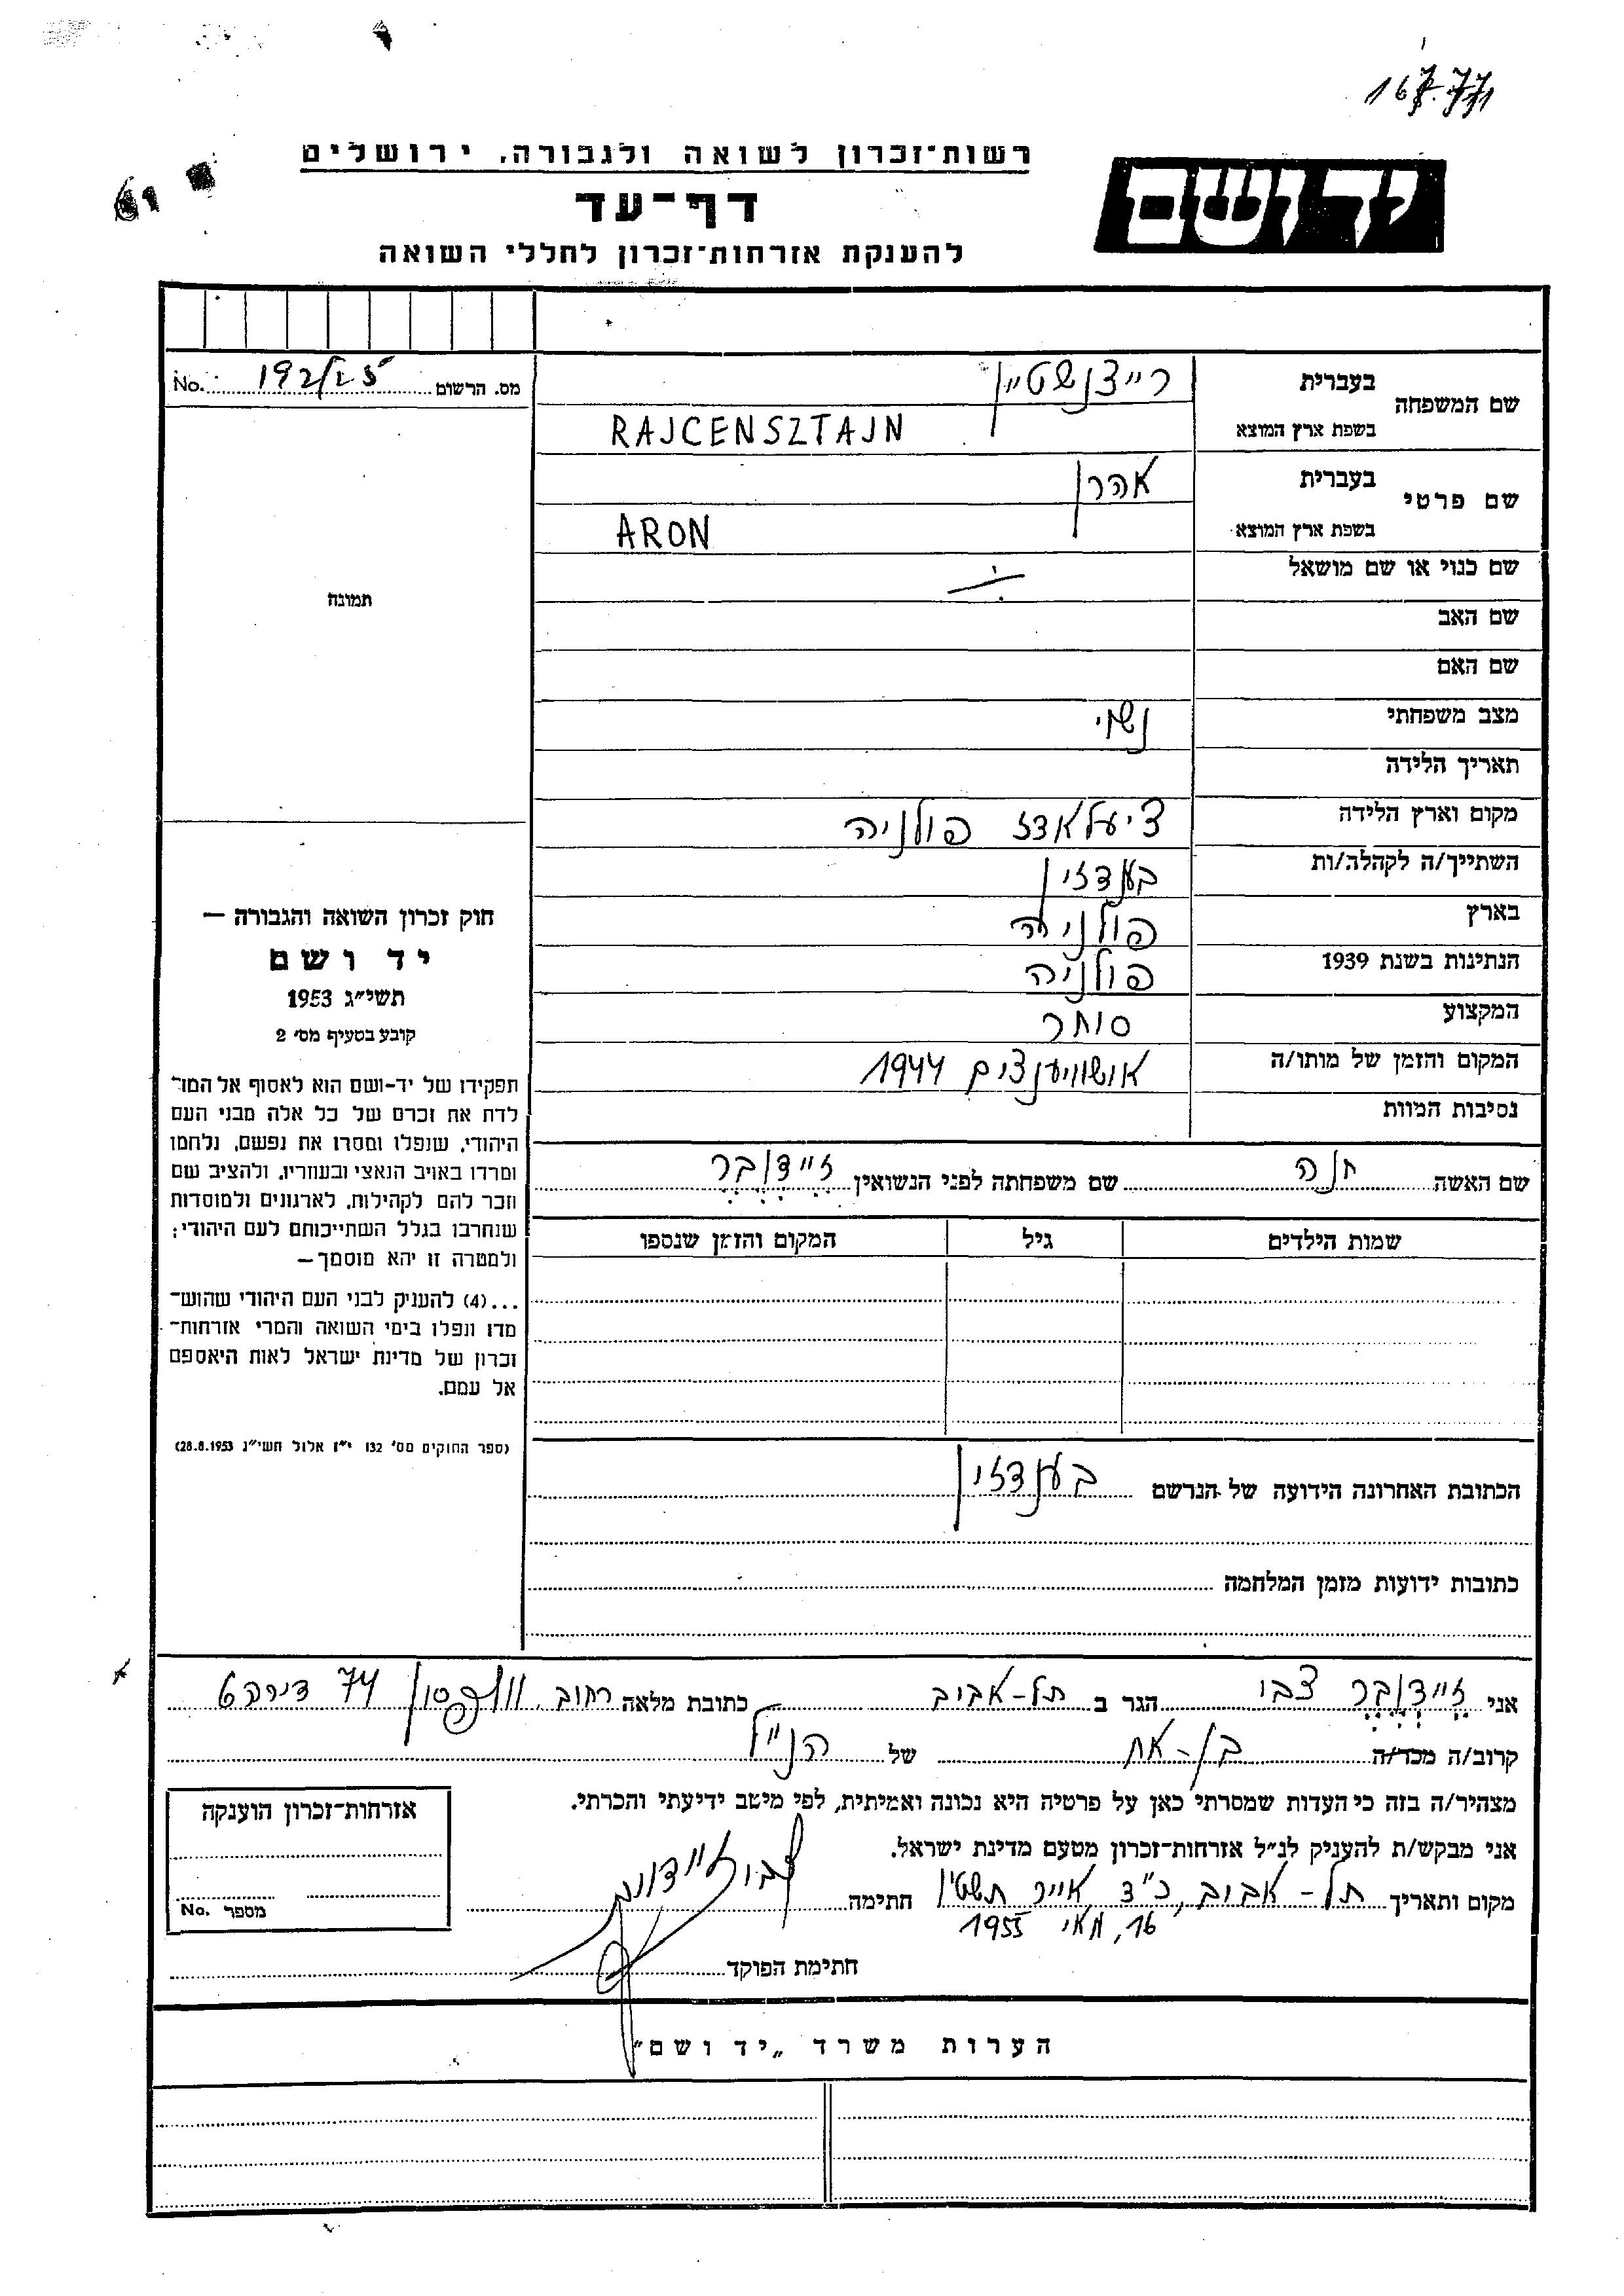 רשות־זכרון לשואה ולגבורה, ירושלים
יד ושם
דף־עד
להענקת אזרחות־זכרון לחללי השואה
מס. הרשום 192/25 No.
שם המשפחה
בעברית רייצנשטיין
בשפת ארץ המוצא RAJCENSZTAJN
שם פרטי
בעברית אהרן
בשפת ארץ המוצא ARON
שם כנוי או שם מושאל
שם האב
שם האם
מצב משפחתי נשוי
תאריך הלידה
מקום וארץ הלידה פולניה
השתייך/ה לקהלה/ות בענדזין
בארץ פולניה
הנתינות בשנת 1939 פולניה
המקצוע סוחר
המקום והזמן של מותו/ה אושוויענצים 1944
נסיבות המוות
שם האשה חנה שם משפחתה לפני הנשואין זיידנבר
שמות הילדים גיל המקום והזמן שנספו
הכתובת האחרונה הידועה של הנרשם בענדזין
כתובות ידועות מזמן המלחמה
תמונה
חוק זכרון השואה והגבורה –
יד ושם
תשי״ג 1953
קובע בסעיף מס׳ 2
תפקידו של יד-ושם הוא לאסוף אל המו־
לדת את זכרם של כל אלה מבני העם
היהודי, שנפלו ומסרו את נפשם, נלחמו
ומרדו באויב הנאצי ובעוזריו, ולהציב שם
וזכר להם לקהילות, לארגונים ולמוסדות
שנחרבו בגלל השתייכותם לעם היהודי;
ולמטרה זו יהא מוסמך–
...(4) להעניק לבני העם היהודי שהוש־
מדו ונפלו בימי השואה והמרי אזרחות־
זכרון של מדינת ישראל לאות היאספם
אל עמם.
(ספר החוקים מס׳ 132 י״ז אלול תשי״ג 28.8.1953)
אני זיידנבר צבי הגר ב תל-אביב כתובת מלאה רחוב וולפסון 74 דירה 6
קרוב/ה מכר/ה בן-אח של הנ״ל
מצהיר/ה בזה כי העדות שמסרתי כאן על פרטיה היא נכונה ואמיתית, לפי מיטב ידיעתי והכרתי.
אני מבקש/ת להעניק לנ״ל אזרחות־זכרון מטעם מדינת ישראל.
מקום ותאריך תל-אביב, כ״ד אייר תשט״ו חתימה
16, מאי 1955
חתימת הפוקד
אזרחות־זכרון הוענקה
מספר No.
הערות משרד „יד ושם״